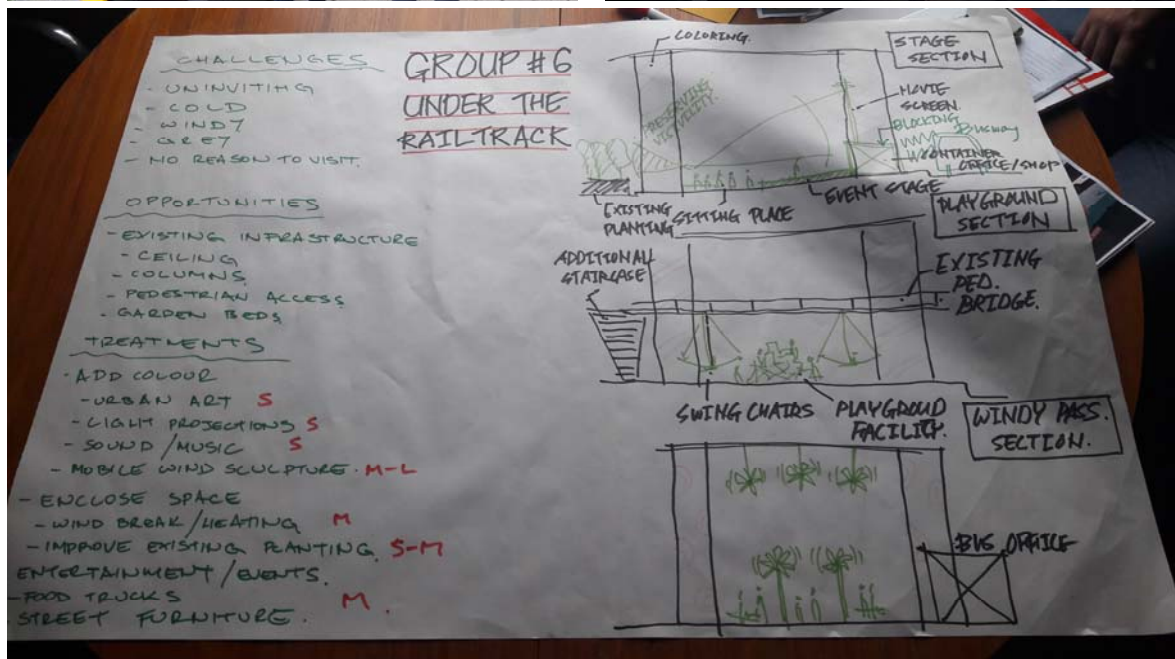 CHALLENGES
- UNINVITING
- COLD
- WINDY
- GREY
- NO REASON TO VISIT.
OPPORTUNITIES
- EXISTING INFRASTRUCTURE
- CEILING
- COLUMNS
- PEDESTRIAN ACCESS
- GARDEN BEDS
TREATMENTS
- ADD COLOUR
- URBAN ART S
- LIGHT PROJECTIONS S
- SOUND/MUSIC S
- MOBILE WIND SCULPTURE. M-L
- ENCLOSE SPACE
- WIND BREAK/HEATING M
- IMPROVE EXISTING PLANTING S-M
ENTERTAINMENT/EVENTS.
- FOOD TRUCKS M.
STREET FURNITURE.
GROUP #6
UNDER THE
RAILTRACK
COLORING.
STAGE
SECTION
PRESERVING
MOVIE
SCREEN.
BLOCKING
Busway
CONTAINER
OFFICE/SHOP
EXISTING
PLANTING
SITTING PLACE
EVENT STAGE
PLAYGROUND
SECTION
ADDITIONAL
STAIRCASE
EXISTING
PED.
BRIDGE.
SWING CHAIRS
PLAYGROUD
FACILITY.
WINDY PASS.
SECTION.
BUS OFFICE